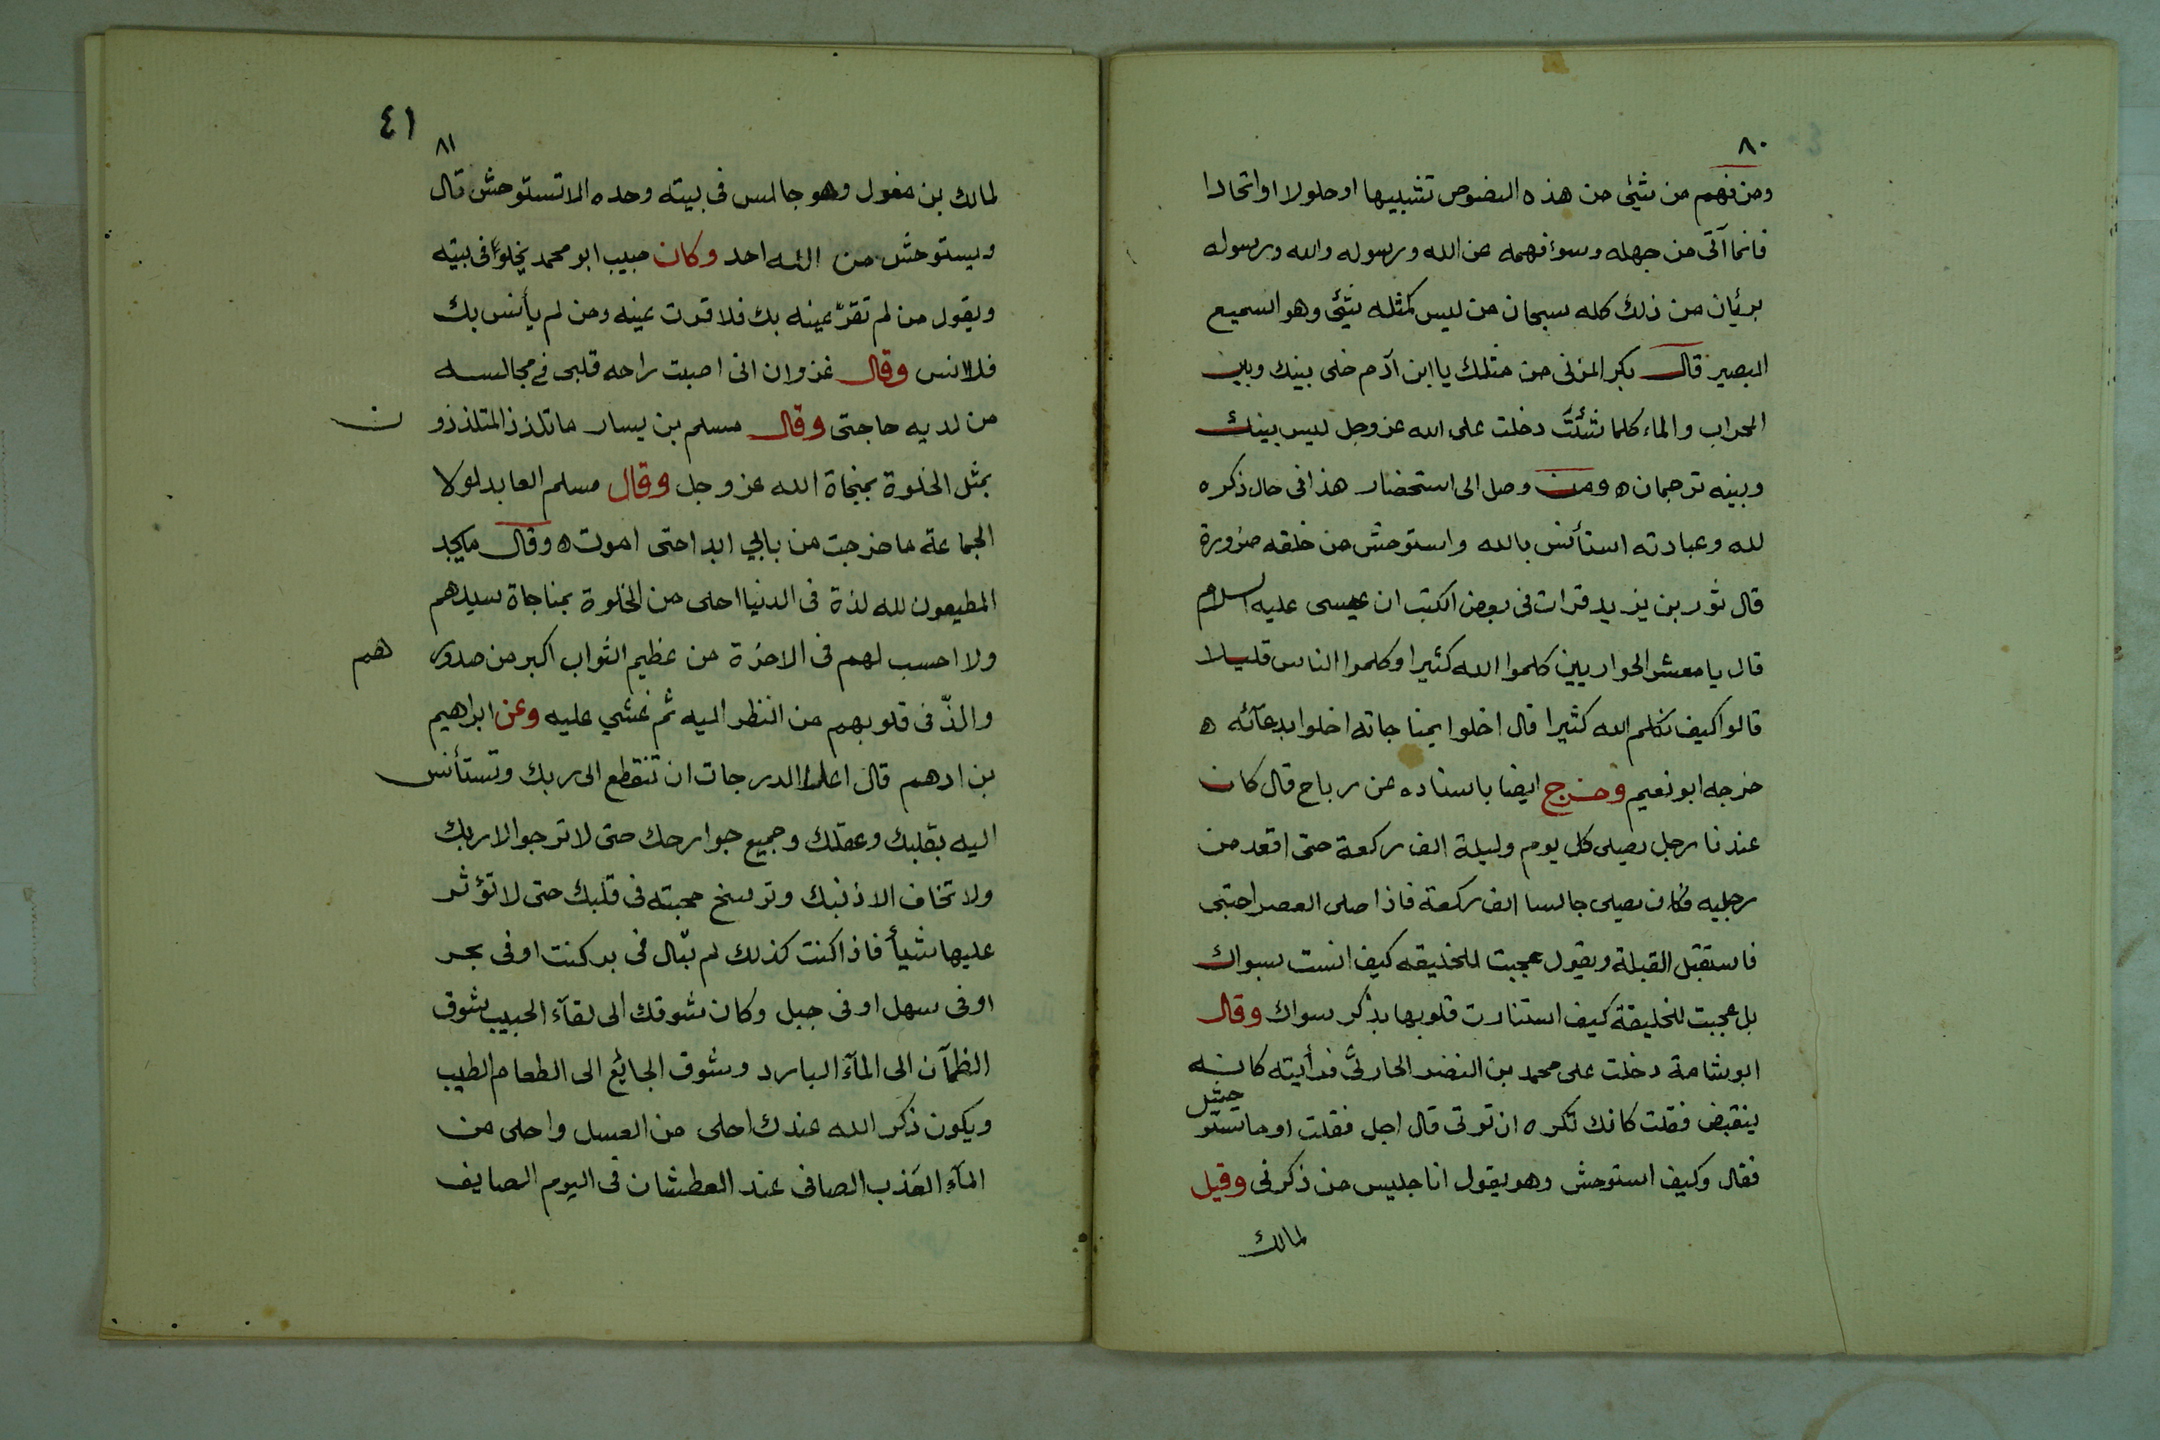 ٨٠
ومن فهم من شيئ من هذه النصوص تشبيها او حلولا او اتحادا
فانما آتى من جهله وسوء فهمه عن الله ورسوله والله ورسوله
بريئان من ذلك كله سبحان من ليس كمثله شيئ وهو السميع
البصير قال بكر المزنى من مثلك يا ابن آدم خلى بينك وبين
المحراب والماء كلما شئت دخلت على الله عز وجل ليس بينك
وبينه ترجمان ه ومن وصل الى استحضار هذا فى حال ذكره
لله وعبادته استأنس بالله واستوحش من خلقه ضرورة
قال ثور بن يزيد قرات فى بعض الكتب ان عيسى عليه السلام
قال يا معشر الحواريين كلموا الله كثيرا وكلموا الناس قليلا
قالوا كيف نكلم الله كثيرا قال اخلوا بمناجاته اخلوا بدعائه ه
خرجه ابو نعيم وخرج ايضا باسناده عن رباح قال كان
عندنا رجل يصلى كل يوم وليلة الف ركعة حتى اقعد من
رجليه فكان يصلى جالسا الف ركعة فاذا صلى العصر احتبى
فاستقبل القبلة ويقول عجبت للخليقه كيف انست بسواك
بل عجبت للخليقة كيف استنارت قلوبها بذكر سواك وقال
ابو شامة دخلت على محمد بن النضر الحارثى فرأيته كانه
ينقبض فقلت كانك تكره ان توتى قال اجل فقلت اوما تستو
حش
فقال وكيف استوحش وهو يقول انا جليس من ذكرنى وقيل
لمالك
٤١
٨١
لمالك بن مغول وهو جالس فى بيته وحده الا تستوحش قال
ويستوحش من الله احد وكان حبيب ابو محمد يخلوا فى بيته
ويقول من لم تقر عينه بك فلا قرت عينه ومن لم يأنس بك
فلا انس وقال غزوان انى اصبت راحه قلبى فى مجالسه
من لديه حاجتى وقال مسلم بن يسار ما تلذذ المتلذذو ن
بمثل الخلوة بمنجاة الله عز وجل وقال مسلم العابد لولا
الجماعة ما خرجت من بابي ابدا حتى اموت ه وقال ما يجد
المطيعون لله لذة فى الدنيا احلى من الخلوة بمناجاة سيدهم
ولا احسب لهم فى الاخرة من عظيم الثواب اكبر من صدور هم
والذ فى قلوبهم من النظر اليه ثم غشي عليه وعن ابراهيم
بن ادهم قال اعلا الدرجات ان تنقطع الى ربك وتستأنس
اليه بقلبك وعقلك وجميع جوارحك حتى لا ترجوا الا ربك
ولا تخاف الا ذنبك وترسخ محبته فى قلبك حتى لا تؤثر
عليها شيأ فاذا كنت كذلك لم تبال فى بر كنت او فى بحر
او فى سهل او فى جبل وكان شوقك الى لقآء الحبيب شوق
الظمآن الى المآء البارد وشوق الجايع الى الطعام الطيب
ويكون ذكر الله عندك احلى من العسل واحلى من
المآء العذب الصافى عند العطشان فى اليوم الصايف